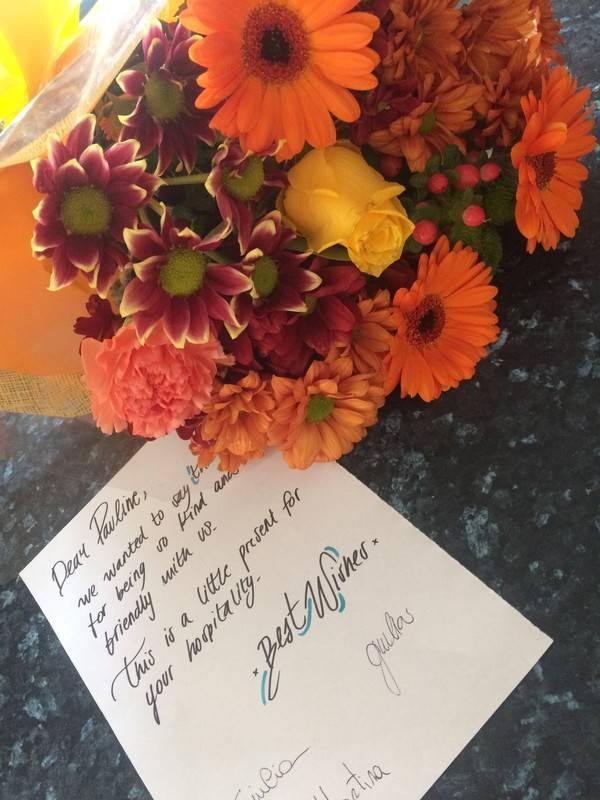 Dear Pauline,
we wanted to say
for being so kind and
friendly with us.
This is a little present for
your hospitality.
Best Wishes
giulia